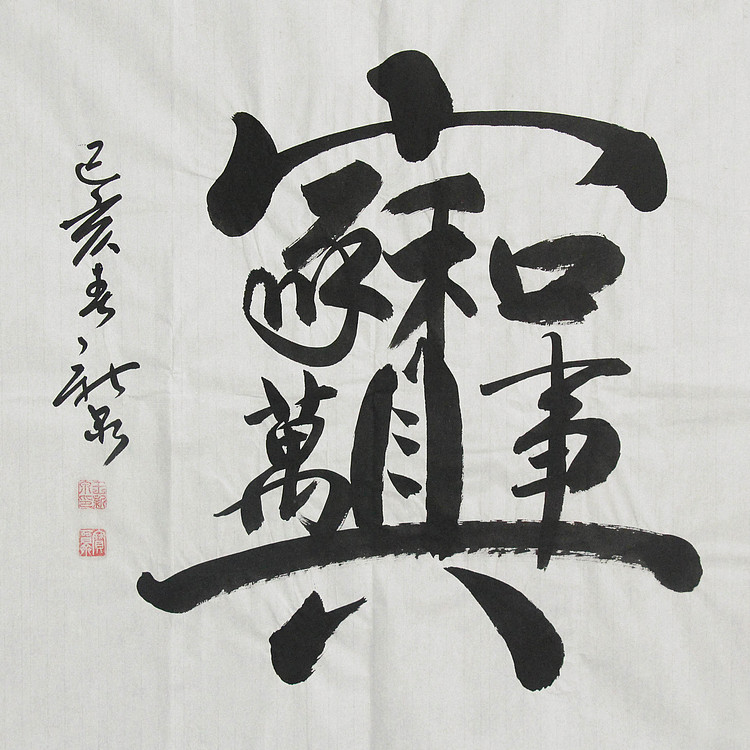 家和萬事興
己亥春新泉